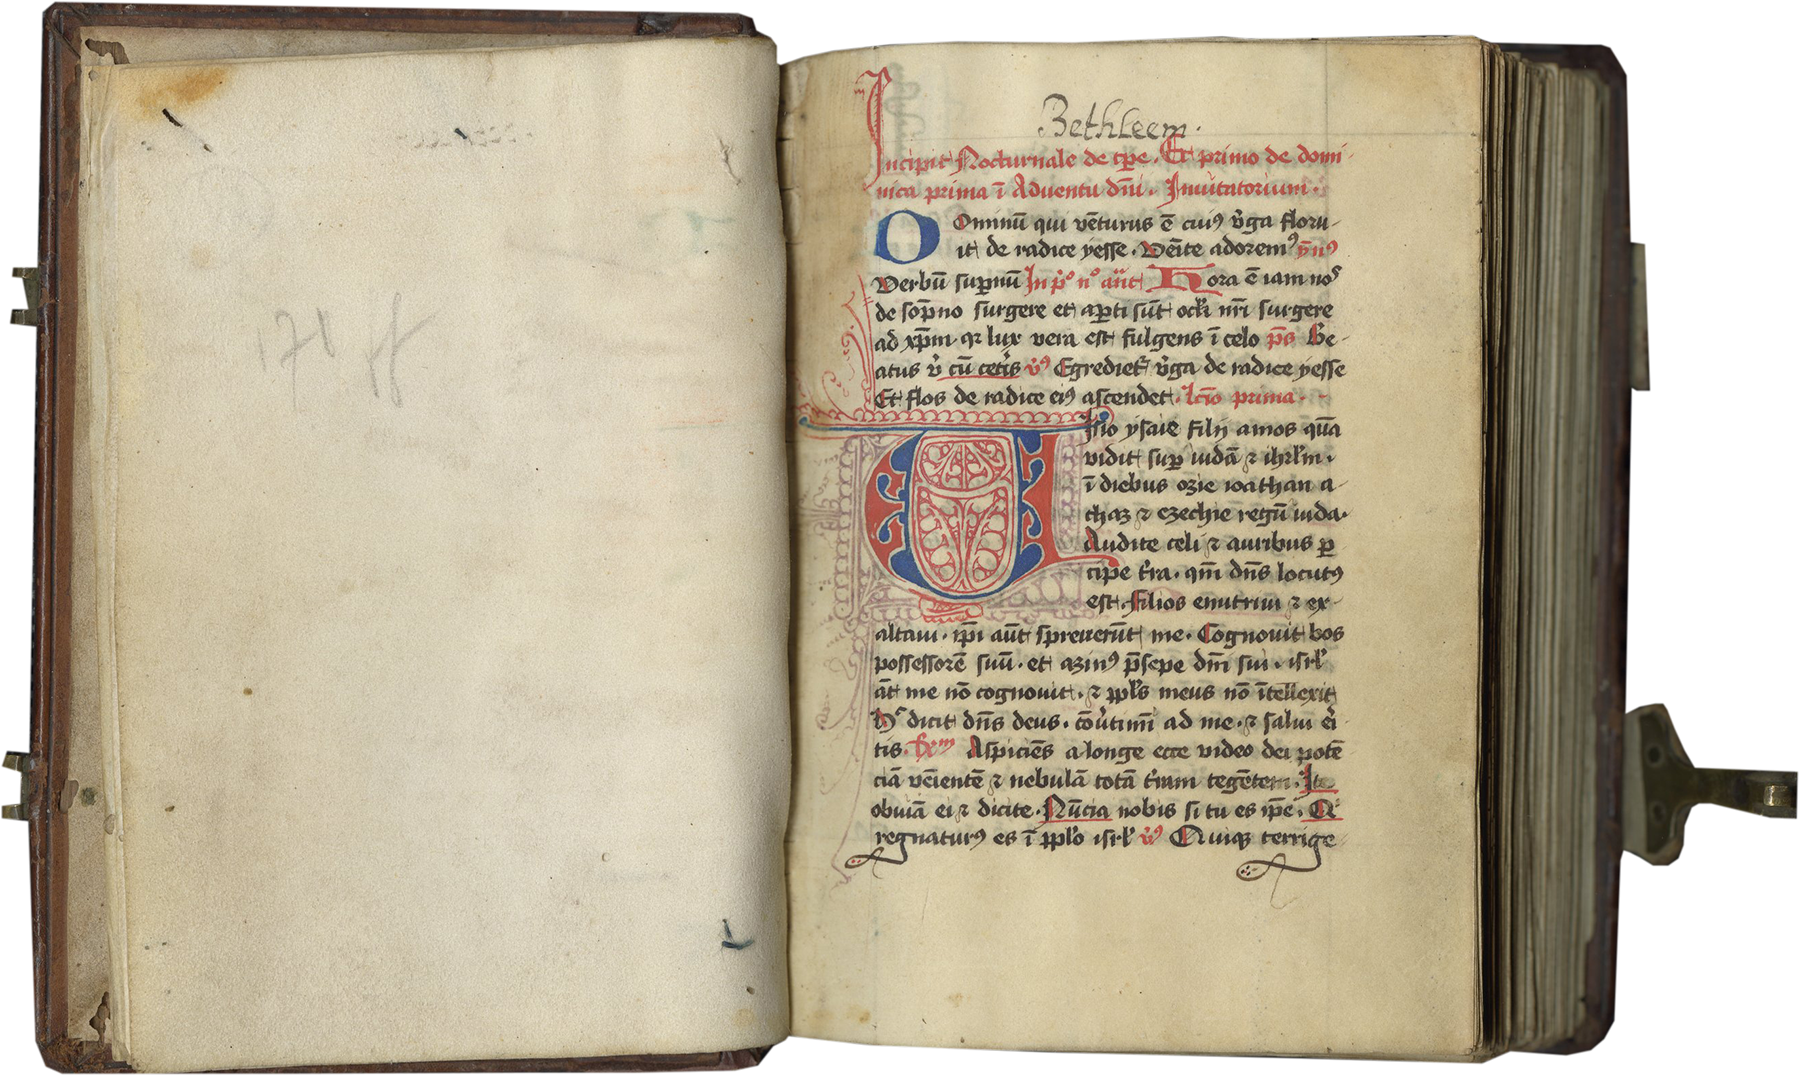 171 ff
Bethleem.
Incipit Nocturnale de tp̄e. Et primo de domi-
nica prima ī Adventu dn̄i. Invitatorium.
Dominū qui vēturus ē cuiꝯ v̓ga floru-
it de radice yesse. Venite adoremꝯ ẏnꝯ
Verbū suꝑnū In p̓º nº an̄t Hora ē iam nos
de sop̄no surgere et aꝑti sūt oculi nr̄i surgere
ad xp̄m qꝛ lux vera est fulgens ī celo p̄s Be-
atus v̓ cū cet̓is v̓ꝯ Egrediet̓ v̓ga de radice yesse
Et flos de radice eiꝯ ascendet. lc̄io prima.
Visio ysaie filij amos quā
vidit suꝑ iudā ⁊ ihrlm̄.
ī diebus ozie ioathan a-
chaz ⁊ ezechie regū iuda.
Audite celi ⁊ auribus ꝑ-
cipe t̓ra. qm̄ dn̄s locutꝯ
est. filios enutrivi ⁊ ex-
altavi. ip̄i aūt spreverūt me. Cognovit bos
possessorē suū. et azinꝯ p̄sepe dn̄i sui. isrl̓
āt me nō cognovit. ⁊ ppl̓s meus nō ītellexit
Hᶜ dicit dn̄s deus. cōv̓timī ad me. ⁊ salvi e̓i-
tis. Aspiciēs a longe ecce video dei potē-
ciā venientē ⁊ nebulā totā t̓ram tegētem. Ite
obviā ei ⁊ dicite. Nūcia nobis si tu es ip̄e. Qⁱ
regnaturꝯ es ī ppl̓o isrl̓ v̓ꝯ Quiqꝫ terrige-